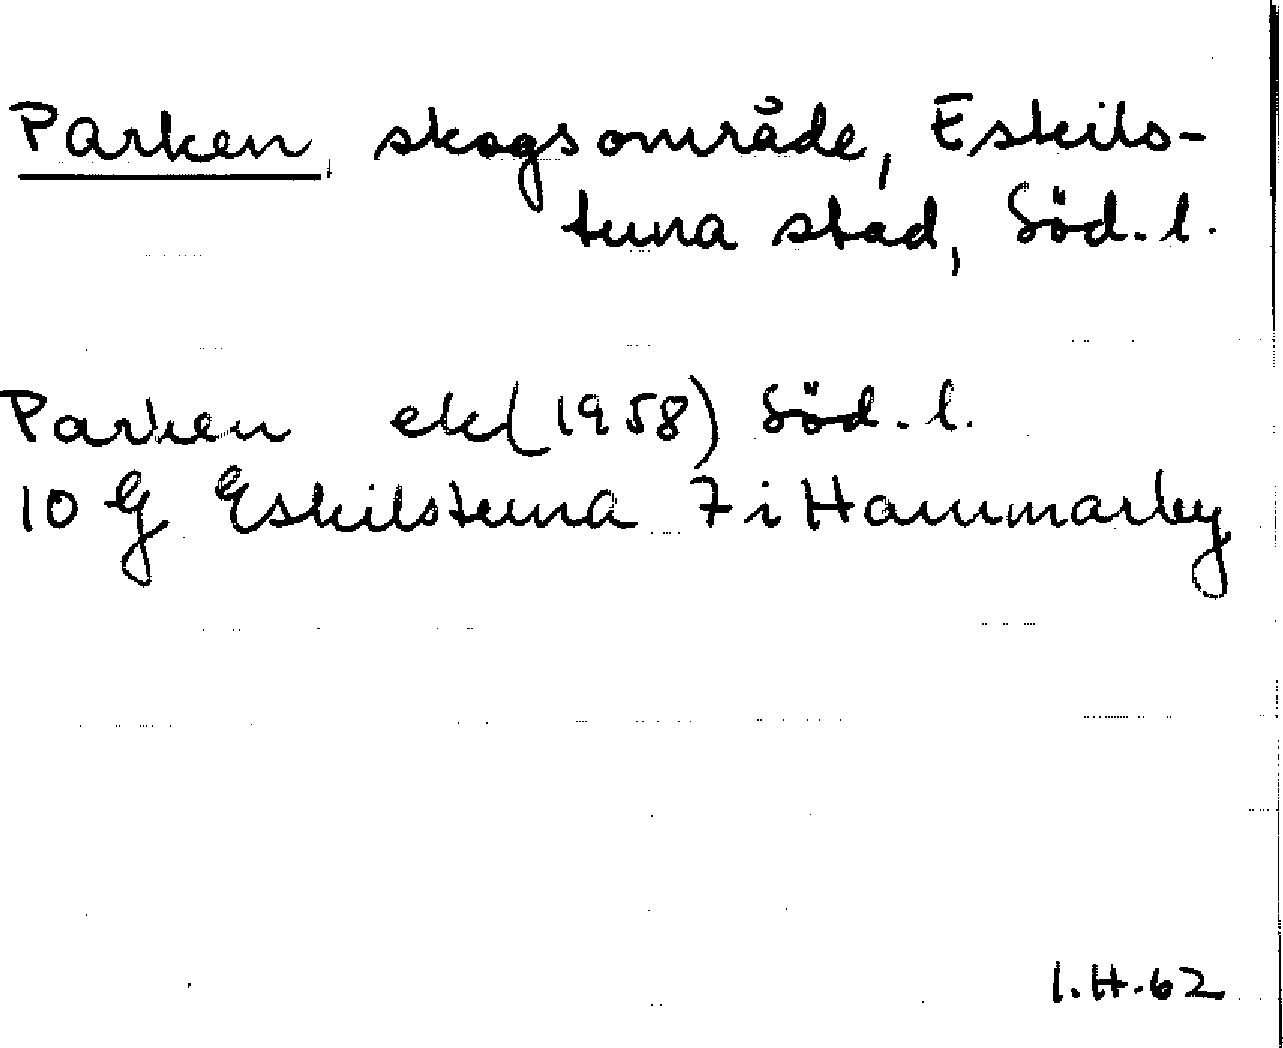 Parken, skogsområde, Eskils-
tuna stad, Söd. l.
Parken ek (1958) Söd. l.
10 G Eskilstuna 7 i Hammarby
I.H.62